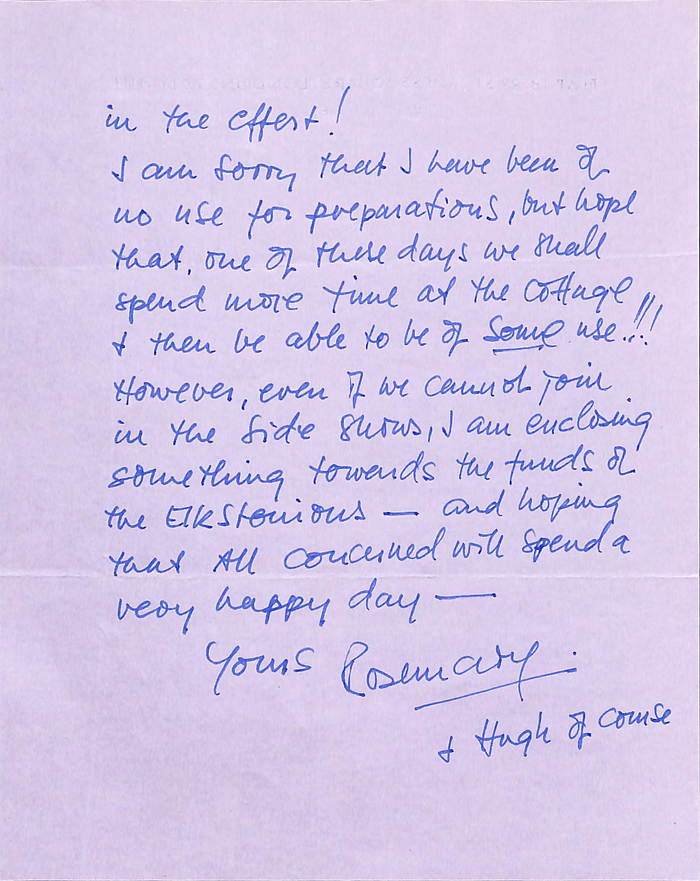 in the effort!
I am sorry that I have been of
no use for preparations, but hope
that, one of these days we shall
spend more time at the cottage
& then be able to be of some use!!!
However, even if we cannot join
in the side shows, I am enclosing
something towards the funds of
the Elkstonions — and hoping
that All concerned will spend a
very happy day —
Yours Rosemary.
& Hugh of course